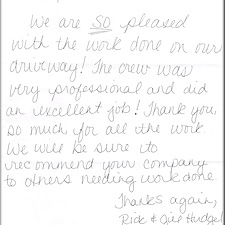 We are SO pleased
with the work done on our
driveway! The crew was
very professional and did
an excellent job! Thank you,
so much for all the work
We will be sure to
recommend your company
to others needing work done
Thanks again,
Rick &